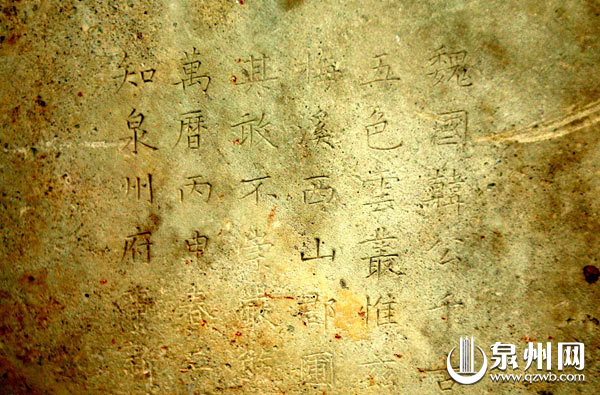 魏國韓公千古
五色雲叢惟
梅溪西山郡
其敢不崇嚴
萬曆丙申春
知泉州府
泉州网
www.qzwb.com